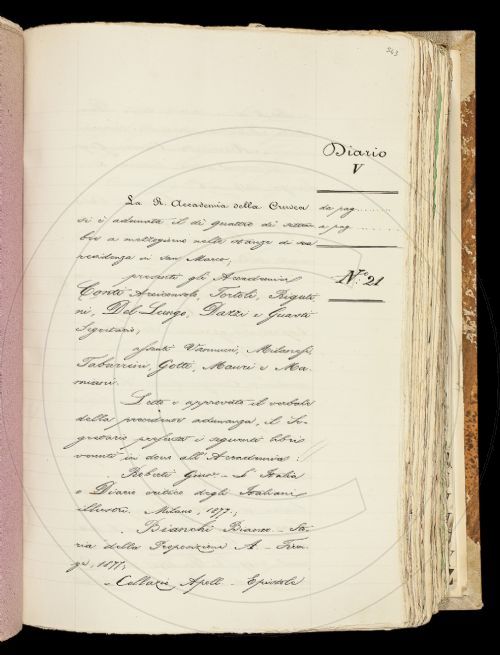 343
Diario
V
La R. Accademia della Crusca
da pag..........
si è adunata il dì quattro di settem
a pag..........
bre a mezzogiorno nelle stanze di sua
residenza in San Marco;
N.° 21
presenti gli Accademici
Conti Arciconsolo, Tortoli, Biguti
ni, Del Lungo, Dazzi e Guasti
Segretario;
assenti Vannucci, Milanesi,
Tabarrini, Gotti, Mauri e Ma-
miani.
Letto e approvato il verbale
della precedente adunanza, il Se-
gretario presenta i seguenti libri
venuti in dono all'Accademia:
Roberti Gius.e - L'Italia
o Diario critico degli Italiani
illustri. Milano, 1877.;
Bianchi Bianco - Sto-
ria della Preposizione A - Firen-
ze, 1877;
Collazio Apoll - Epistole